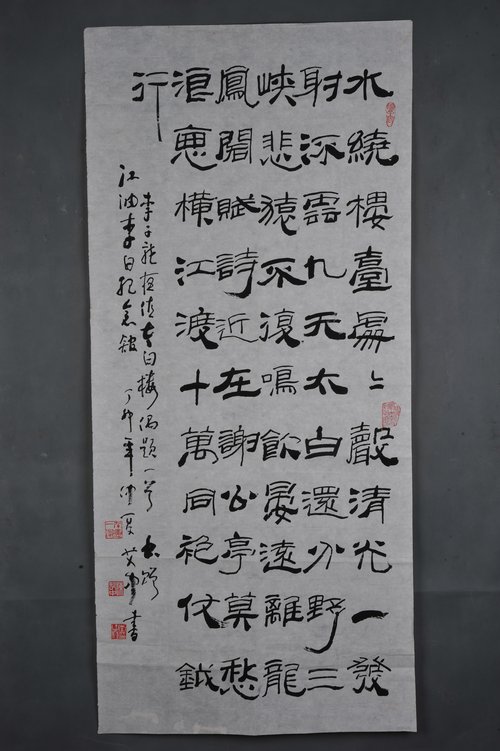 水繞樓臺處〻聲清光一發
射雲九天太白還分野三
峽悲猿不復鳴飲遠離龍
鳳閣賦詩近在謝公亭莫愁
浪惡橫江渡十萬同袍仗鉞
行
李子龍夜太白樓偶題一首 書贈
江油李白紀念館 丁卯年仲夏 艾書